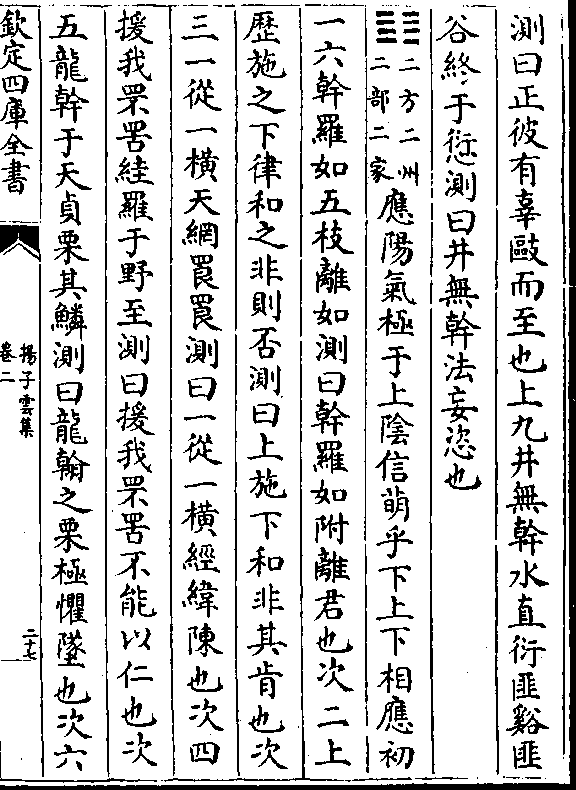 測曰正彼有辜歐而至也上九井無幹水直衍匪谿匪
谷終于愆測曰井無幹法妄恣也
二方二州
二部二家
應陽氣極于上陰信萌乎下上下相應初
一六幹羅如五枝離如測曰幹羅如附離君也次二上
歷施之下律和之非則否測曰上施下和非其肯也次
三一從一橫天網罠罠測曰一從一橫經緯陳也次四
援我罘罟絓羅于野至測曰援我罘罟不能以仁也次
五龍幹于天貞栗其鱗測曰龍翰之栗極懼墜也次六
欽定四庫全書
揚子雲集
卷二
二十七